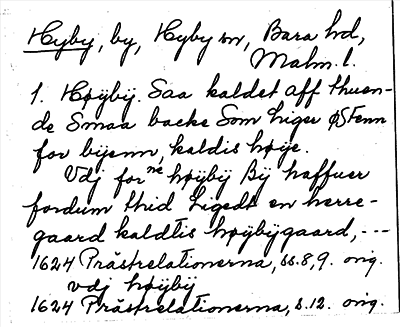 Hyby, by, Hyby sn, Bara hd,
Malm. l.
1. Høÿbÿ. Saa kaldet aff thuen-
de Smaa backe Som liger østenn
for bÿenn, kaldis høÿe.
Vdj forne høÿbÿ Bÿ haffuer
fordum thid Ligedt en herre-
gaard kaldtis høÿbÿgaard, ---
1624 Prästrelationerna, ss. 8, 9. orig.
vdj høÿbÿ
1624 Prästrelationerna, s. 12. orig.